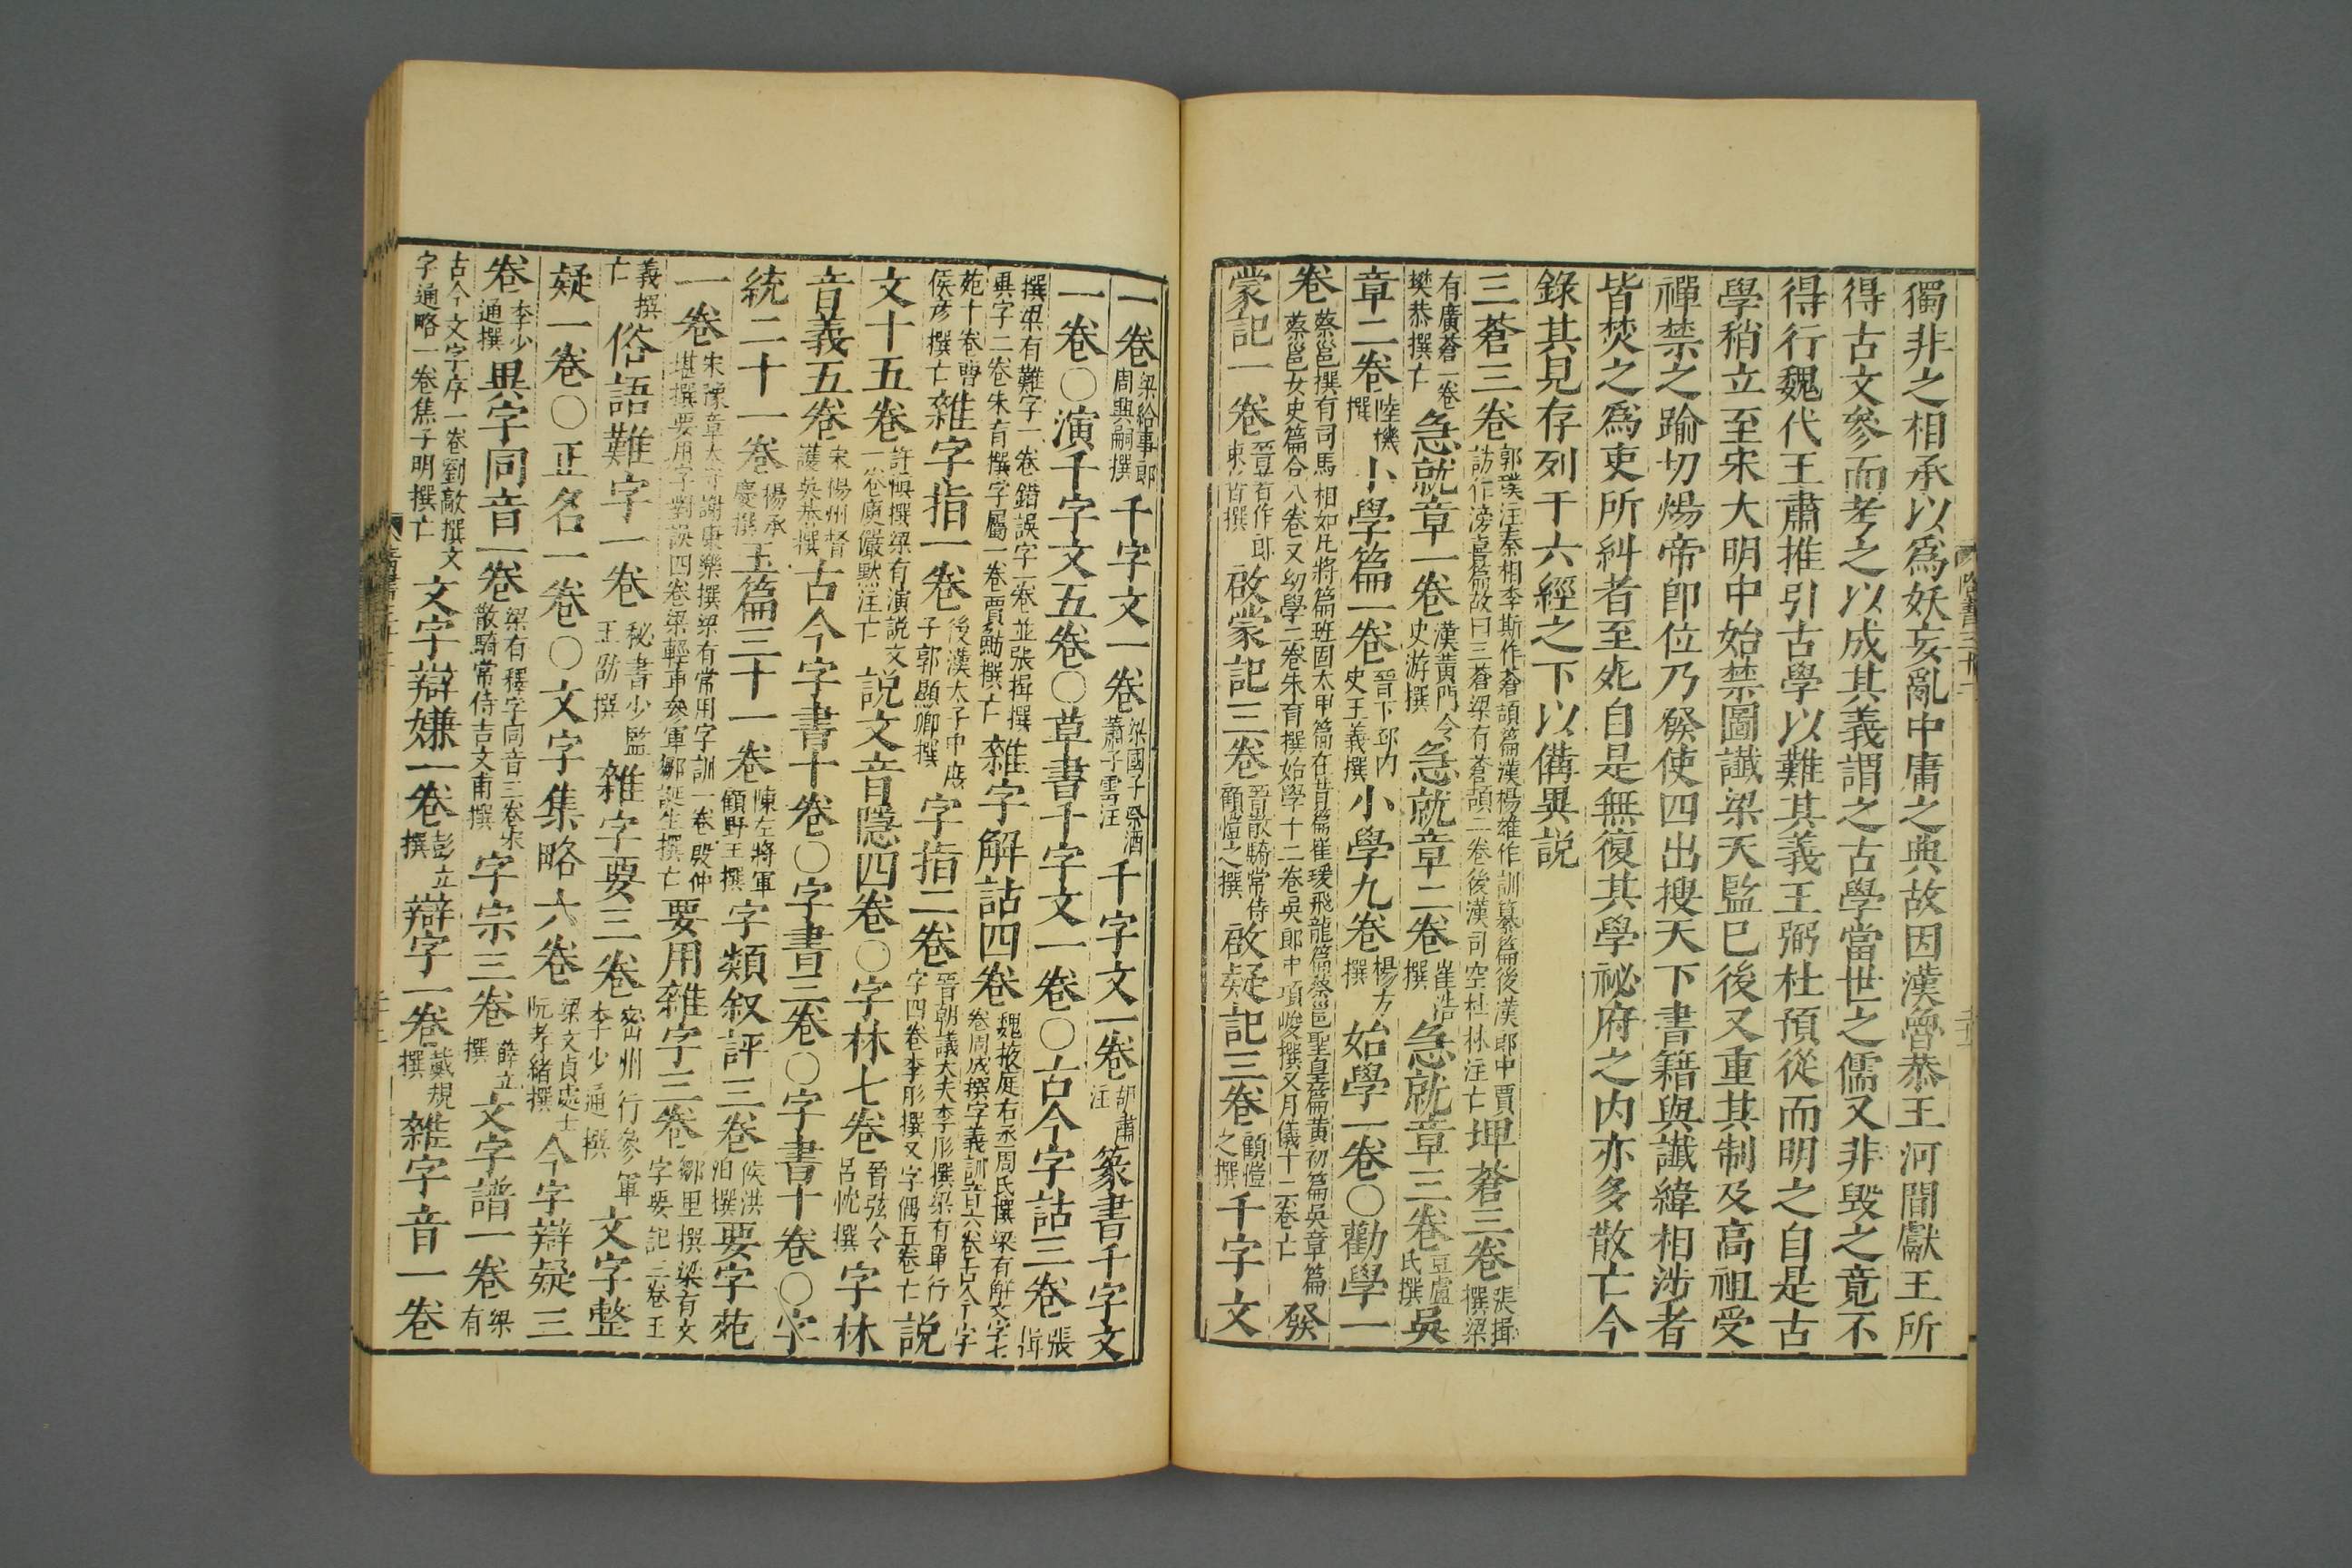 獨非之相承以爲妖妄亂中庸之典故因漢魯恭王河間獻王所
得古文參而考之以成其義謂之古學當世之儒又非毀之竟不
得行魏代王肅推引古學以難其義王弼杜預從而明之自是古
學稍立至宋大明中始禁圖讖梁天監已後又重其制及高祖受
禪禁之踰切煬帝即位乃發使四出搜天下書籍與讖緯相涉者
皆焚之爲吏所糾者至死自是無復其學祕府之內亦多散亡今
錄其見存列于六經之下以備異説
三蒼三卷郭璞注秦相李斯作蒼頡篇漢楊雄作訓纂篇後漢郎中賈訪作滂喜篇故曰三蒼梁有蒼頡二卷後漢司空杜林注亡埤蒼三卷張揖撰梁
有廣蒼一卷樊恭撰亡急就章一卷漢黃門令史游撰急就章二卷崔浩撰急就章三卷豆盧氏撰吳
章二卷陸機撰小學篇一卷晉下邳內史王義撰小學九卷楊方撰始學一卷○勸學一
卷蔡邕撰有司馬相如凡將篇班固太甲篇在昔篇崔瑗飛龍篇蔡邕聖皇篇黃初篇吳章篇蔡邕女史篇合八卷又幼學二卷朱育撰始學十二卷吳郎中項峻撰又月儀十二卷亡發
蒙記一卷晉著作郎束晳撰啟蒙記三卷晉散騎常侍顧愷之撰啟疑記三卷顧愷之撰千字文
一卷梁給事郎周興嗣撰千字文一卷梁國子祭酒蕭子雲注千字文一卷胡肅注篆書千字文
一卷○演千字文五卷○草書千字文一卷○古今字詁三卷張揖
撰梁有難字一卷錯誤字一卷並張揖撰異字二卷朱育撰字屬一卷賈魴撰亡雜字解詁四卷魏掖庭右丞周氏撰梁有解文字七卷周成撰字義訓音六卷古今字
苑十卷曹侯彥撰亡雜字指一卷後漢太子中庶子郭顯卿撰字指二卷晉朝議大夫李彤撰梁有單行字四卷李彤撰又字偶五卷亡説
文十五卷許愼撰梁有演説文一卷庾儼默注亡説文音隱四卷○字林七卷晉弦令呂忱撰字林
音義五卷宋楊州督護吳恭撰古今字書十卷○字書三卷○字書十卷○字
統二十一卷楊承慶撰玉篇三十一卷陳左將軍顧野王撰字類叙評三卷侯洪泊撰要字苑
一卷宋豫章太守謝康樂撰梁有常用字訓一卷殷仲堪撰要用字對誤四卷梁輕車參軍鄒誕生撰亡要用雜字三卷鄒里撰梁有文字要記三卷王
義撰亡俗語難字一卷秘書少監王劭撰雜字要三卷密州行參軍李少通撰文字整
疑一卷○正名一卷○文字集略六卷梁文貞處士阮孝緒撰今字辯疑三
卷李少通撰異字同音一卷梁有釋字同音三卷宋散騎常侍吉文甫撰字宗三卷薛立撰文字譜一卷梁有
古今文字序一卷劉歊撰文字通略一卷焦子明撰亡文字辯嫌一卷彭立撰辯字一卷戴規撰雜字音一卷